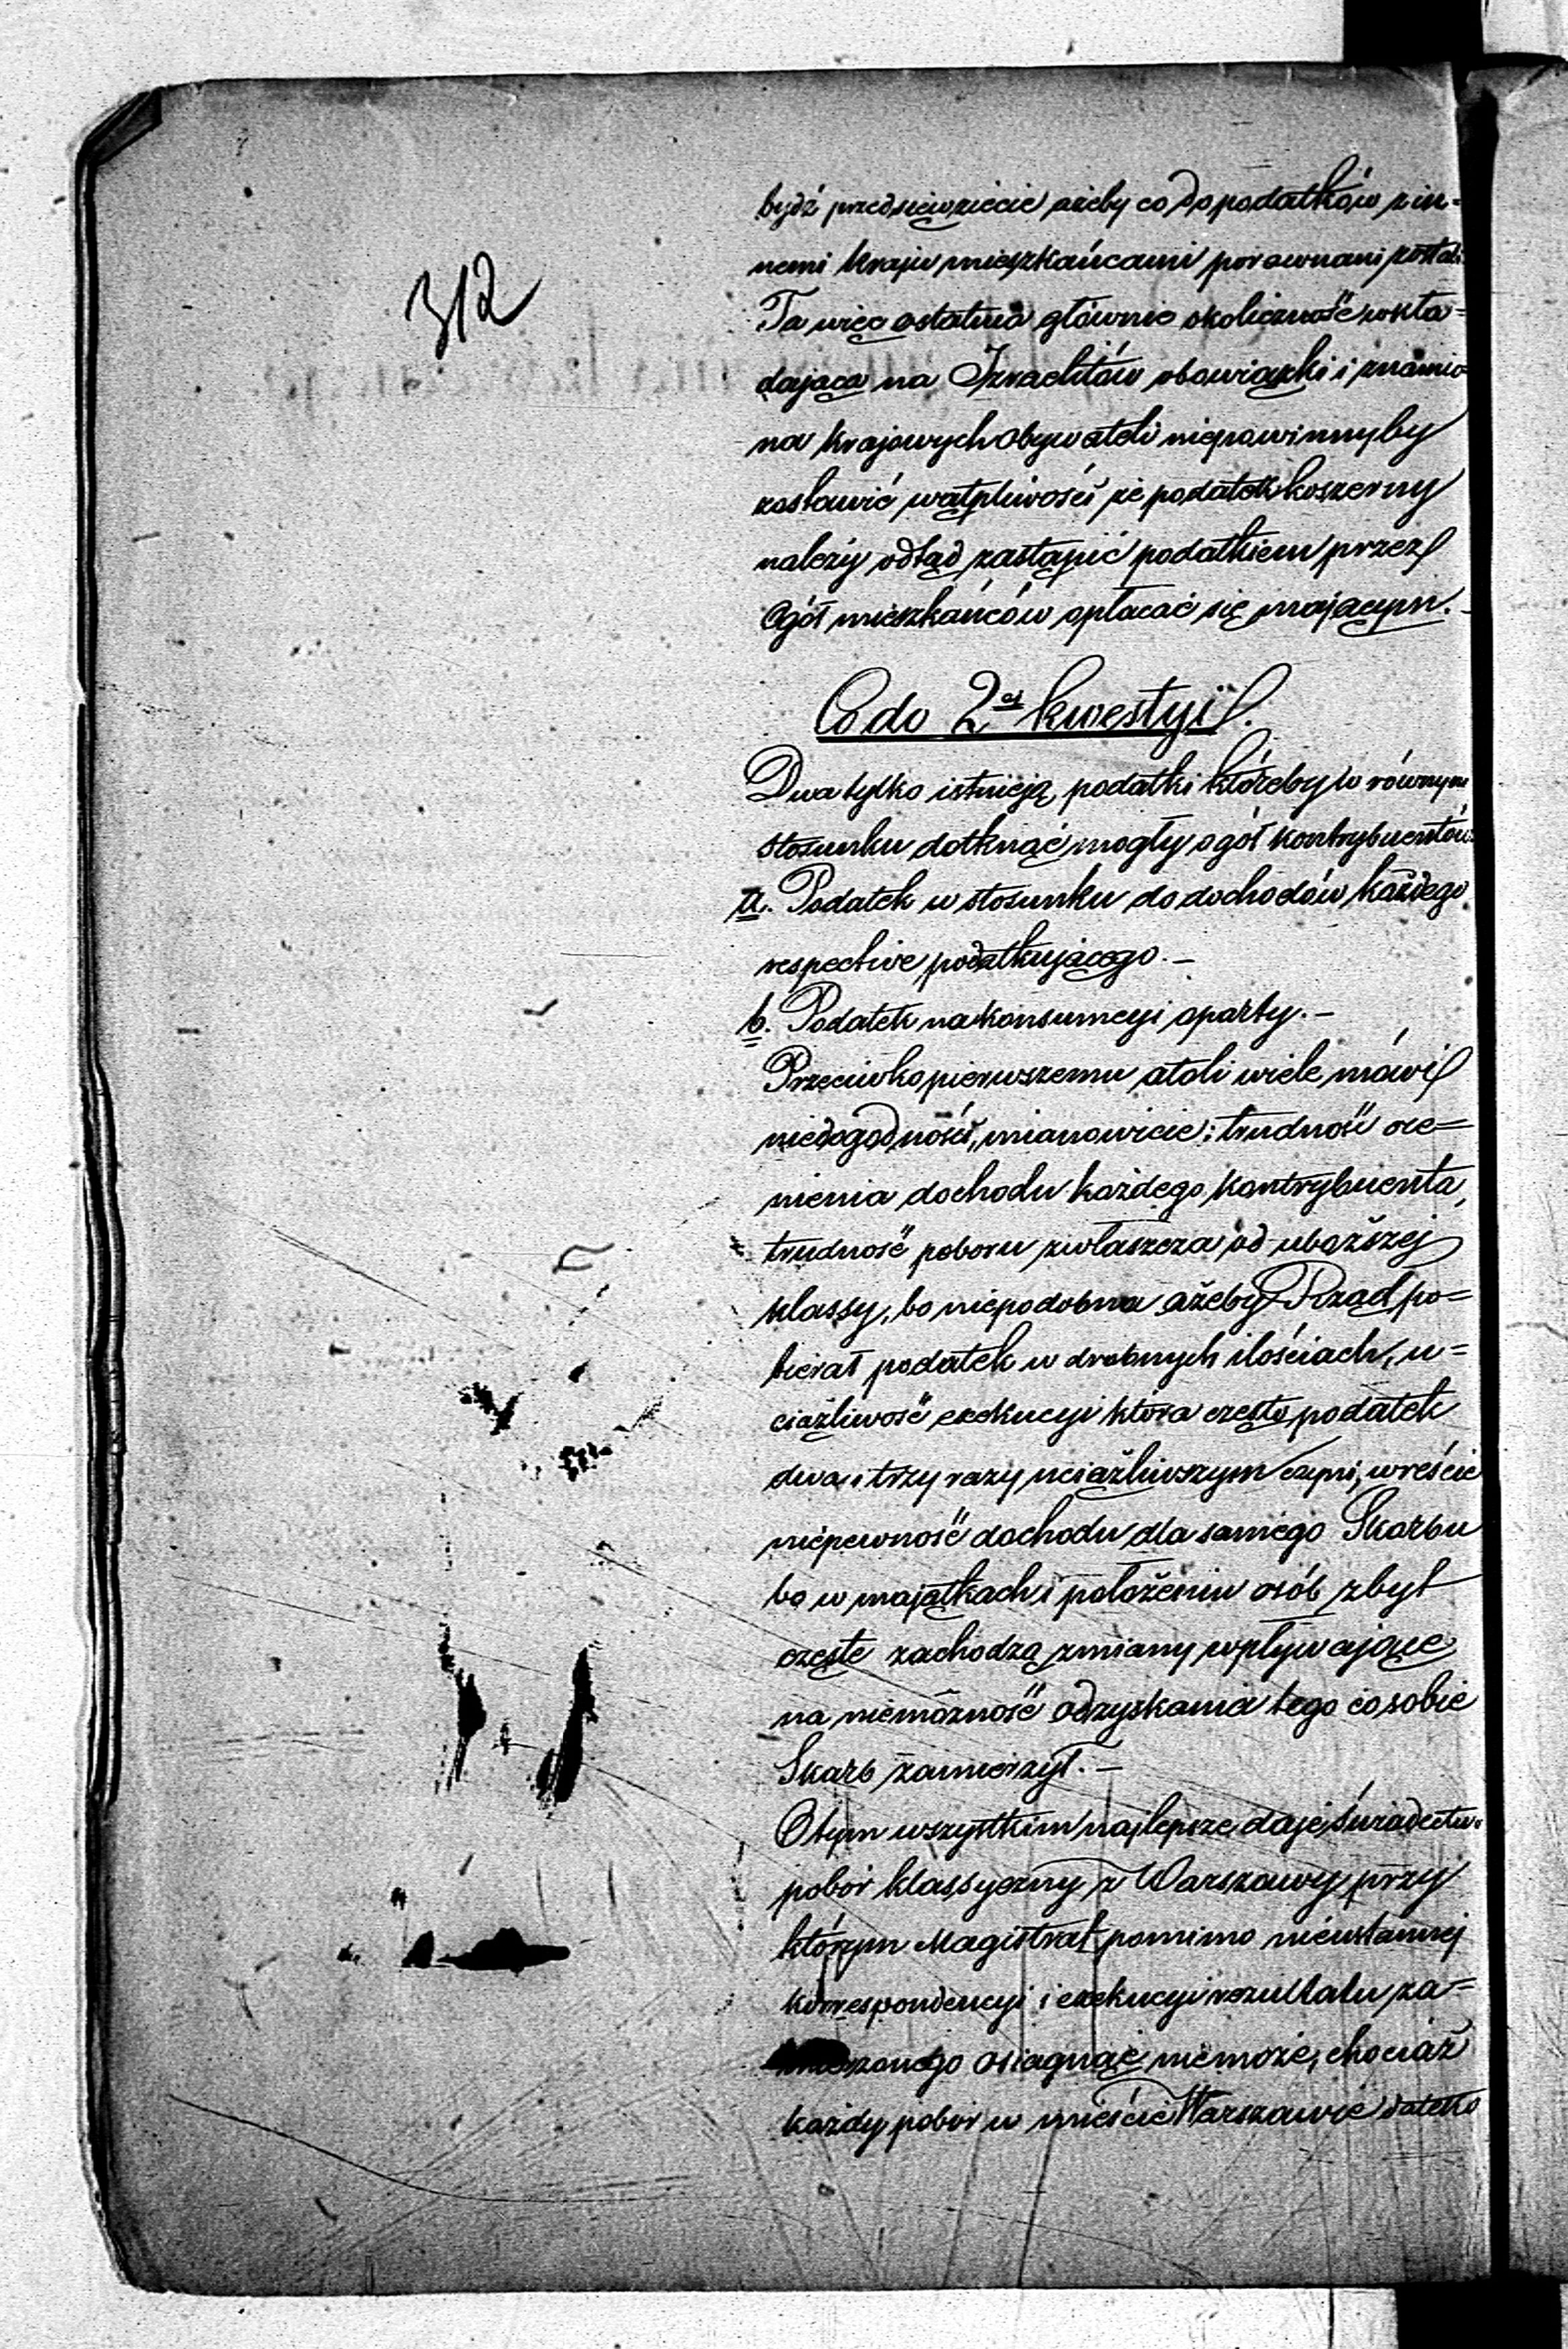 312
bydź przedsięwzięcie ażeby co do podatków z in-
nemi kraju mieszkańcami porownani zostali.
Ta więc ostatnia głównie okoliczność wkła=
dająca na Izraelitów obowiązki i znamio-
na krajowych obywateli niepowinnyby
zostawić wątpliwości że podatek koszerny
należy odtąd zastąpić podatkiem przez
Ogół mieszkańców opłacać się mającym.-
Co do 2ej kwestyi.
Dwa tylko istnieją podatki któreby w równym
stosunku dotknąć mogły ogół kontrybuentów:
a. Podatek w stosunku do dochodów każdego
respective podatkującego.-
b. Podatek na konsumcyi oparty.-
Przeciwko pierwszemu atoli wiele mówi
niedogodności, mianowicie: trudność oce=
nienia dochodu każdego kontrybuenta,
trudność poboru zwłaszcza od uboższej
klassy, bo niepodobna ażeby Rząd po=
bierał podatek w drobnych ilościach, u=
ciążliwość exekucyi która często podatek
dwa i trzy razy uciążliwszym czyni, wreście
niepewność dochodu dla samego Skarbu
bo w majątkach i położeniu osób zbyt
częste zachodzą zmiany wpływające
na niemożność odzyskania tego co sobie
Skarb zamierzył.-
O tym wszystkim najlepsze daje świadectwo
pobór klassyczny z Warszawy, przy
którym Magistrat pomimo nieustannej
korrespondencyi i exekucyi rezultatu za=
mierzonego osiągnąć niemoże, chociaż
każdy pobór w mieście Warszawie daleko